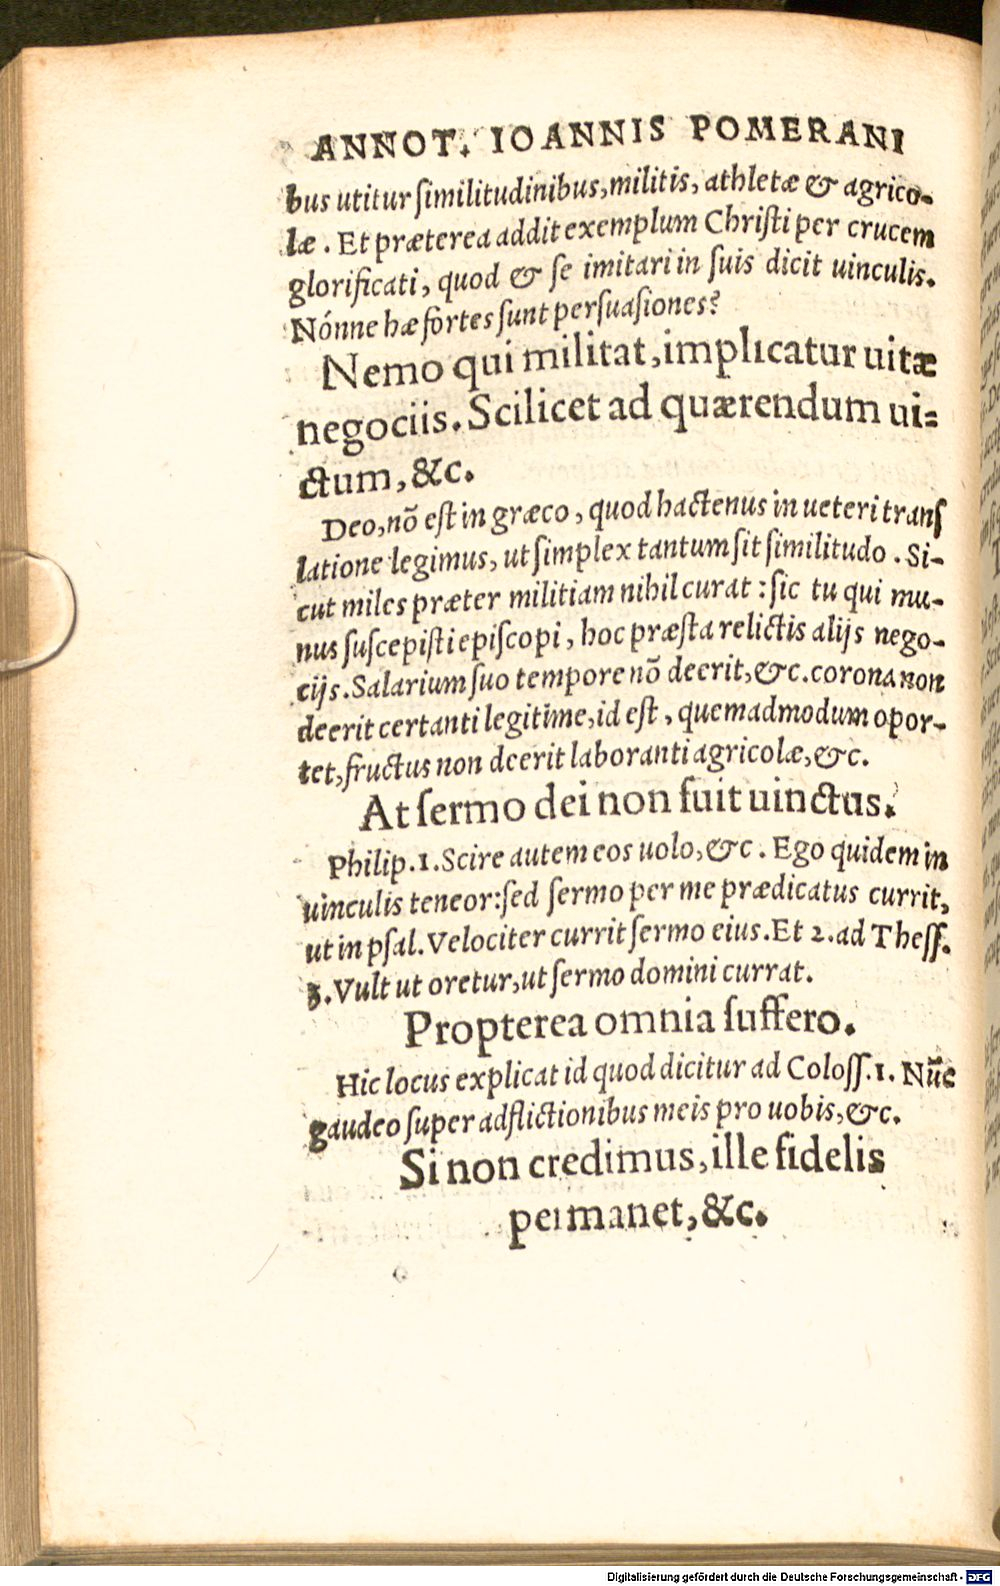 ANNOT. IOANNIS POMERANI
bus utitur ſimilitudinibus, militis, athletæ & agrico-
læ. Et præterea addit exemplum Chriſti per crucem
glorificati, quod & ſe imitari in ſuis dicit uinculis.
Nónne hæ fortes ſunt perſuaſiones?
Nemo qui militat, implicatur uitæ
negociis. Scilicet ad quærendum ui=
ctum, &c.
Deo, nõ eſt in græco, quod hactenus in ueteri tranſ
latione legimus, ut ſimplex tantum ſit ſimilitudo. Si-
cut miles præter militiam nihil curat: ſic tu qui mu-
nus ſuſcepiſti epiſcopi, hoc præſta relictis alijs nego-
cijs. Salarium ſuo tempore nõ deerit, &c. corona non
deerit certanti legitime, id eſt, quemadmodum opor-
tet, fructus non deerit laboranti agricolæ, &c.
At ſermo dei non fuit uinctus.
Philip. 1. Scire autem eos uolo, &c. Ego quidem in
uinculis teneor: ſed ſermo per me prædicatus currit,
ut in pſal. Velociter currit ſermo eius. Et 2. ad Theſſ.
3. Vult ut oretur, ut ſermo domini currat.
Propterea omnia ſuffero.
Hic locus explicat id quod dicitur ad Coloſſ. 1. Nũc
gaudeo ſuper adflictionibus meis pro uobis, &c.
Si non credimus, ille fidelis
permanet, &c.
Digitalisierung gefördert durch die Deutsche Forschungsgemeinschaft - DFG